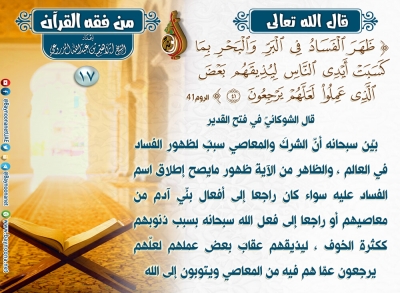 قال الله تعالى
من فقه القرآن
١٧
﴿ ظَهَرَ الْفَسَادُ فِي الْبَرِّ وَالْبَحْرِ بِمَا
كَسَبَتْ أَيْدِي النَّاسِ لِيُذِيقَهُم بَعْضَ
الَّذِي عَمِلُوا لَعَلَّهُمْ يَرْجِعُونَ ٤١ ﴾ الروم41
قال الشوكاني في فتح القدير
بيّن سبحانه أنّ الشرك والمعاصي سبب لظهور الفساد
في العالم ، والظاهر من الآية ظهور مايصح إطلاق اسم
الفساد عليه سواء كان راجعا إلى أفعال بنّي آدم من
معاصيهم أو راجعا إلى فعل الله سبحانه بسبب ذنوبهم
ككثرة الخوف ، ليذيقهم عقاب بعض عملهم لعلّهم
يرجعون عمّا هم فيه من المعاصي ويتوبون إلى الله